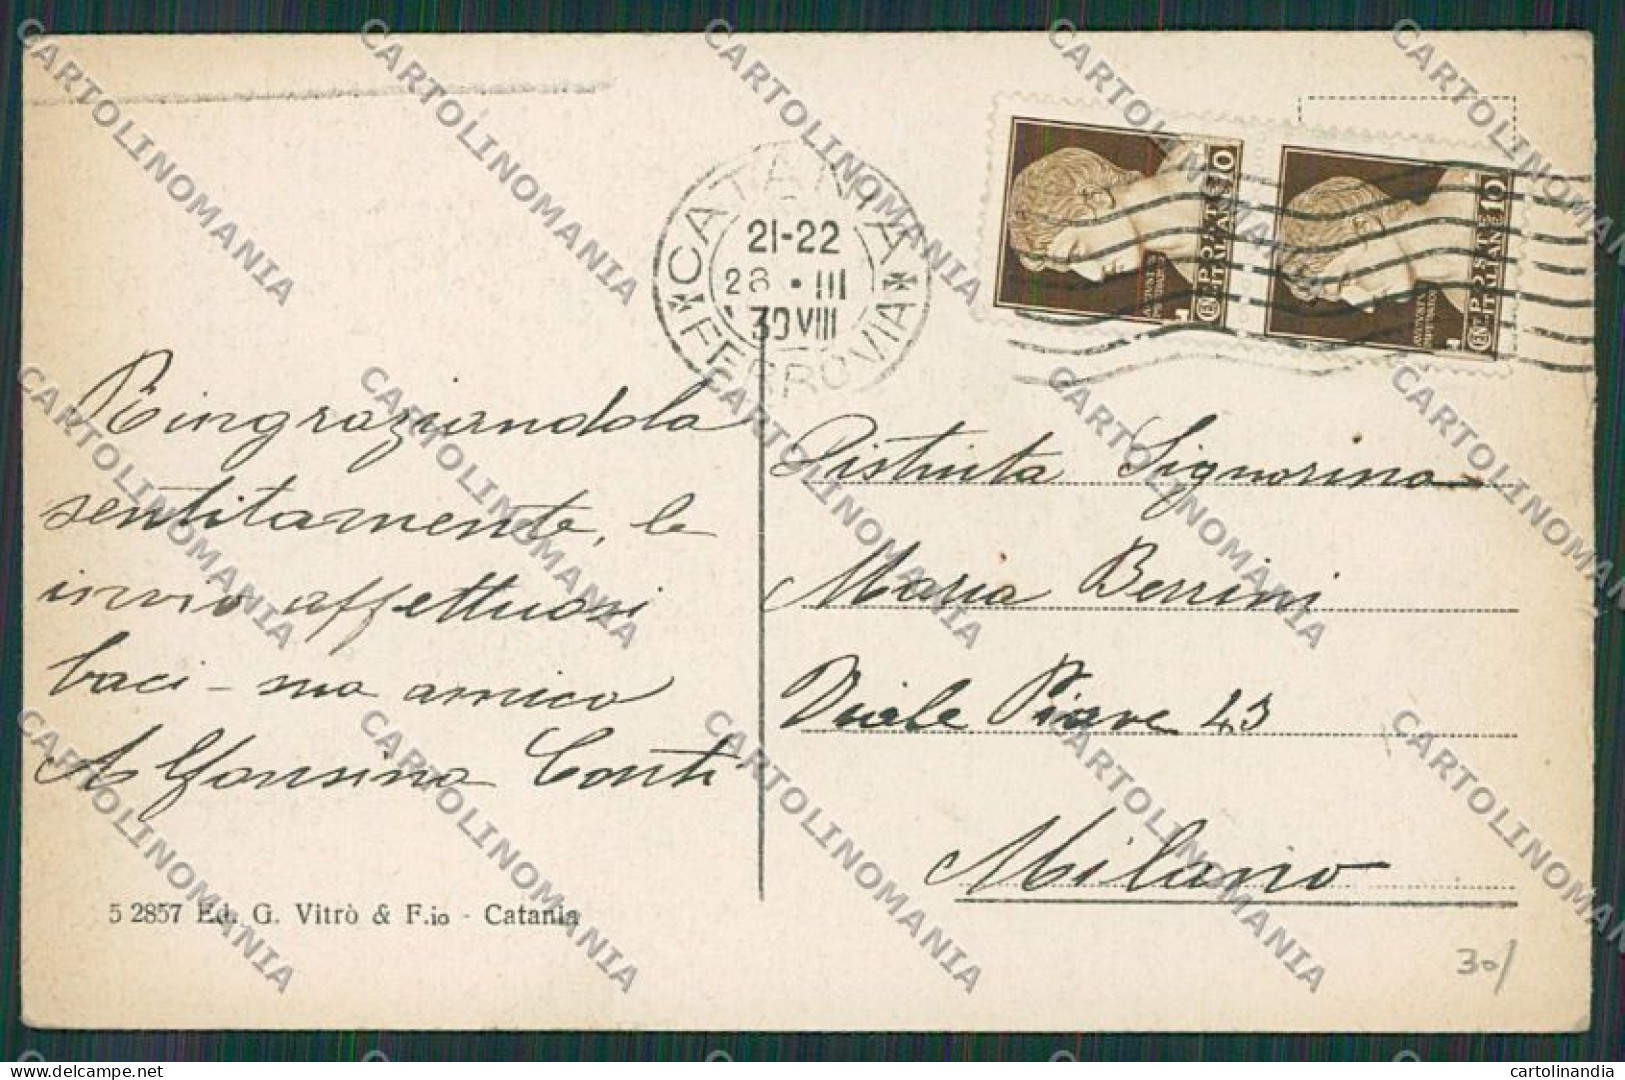 CATANIA
21-22
28 • III
30 VIII
FERROVIA
CENT 10
POSTE
ITALIANE
CENT 10
POSTE
ITALIANE
Ringraziandola
sentitamente, le
invio affettuosi
baci - sua amica
Alfonsina Conti
Distinta Signorina
Maria Berrini
Viale Piave 43
Milano
5 2857 Ed. G. Vitrò & F.io - Catania
30/
CARTOLINOMANIA
cartolinandia